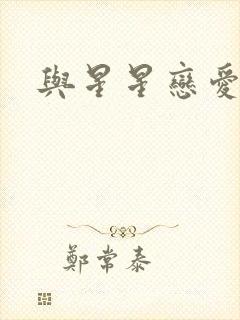 與星星戀愛
鄭常泰